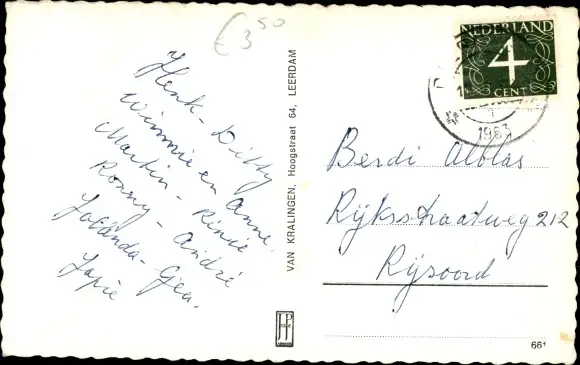 € 3 50
Henk - Ditty
Wimmie en Anne.
Martin - Rinie
Ronny - André
Jolanda - Gea.
Japie
VAN KRALINGEN, Hoogstraat 64, LEERDAM
NEDERLAND
4
CENT
1963
Berdi Alblas
Rijksstraatweg 212
Rijsoord
661